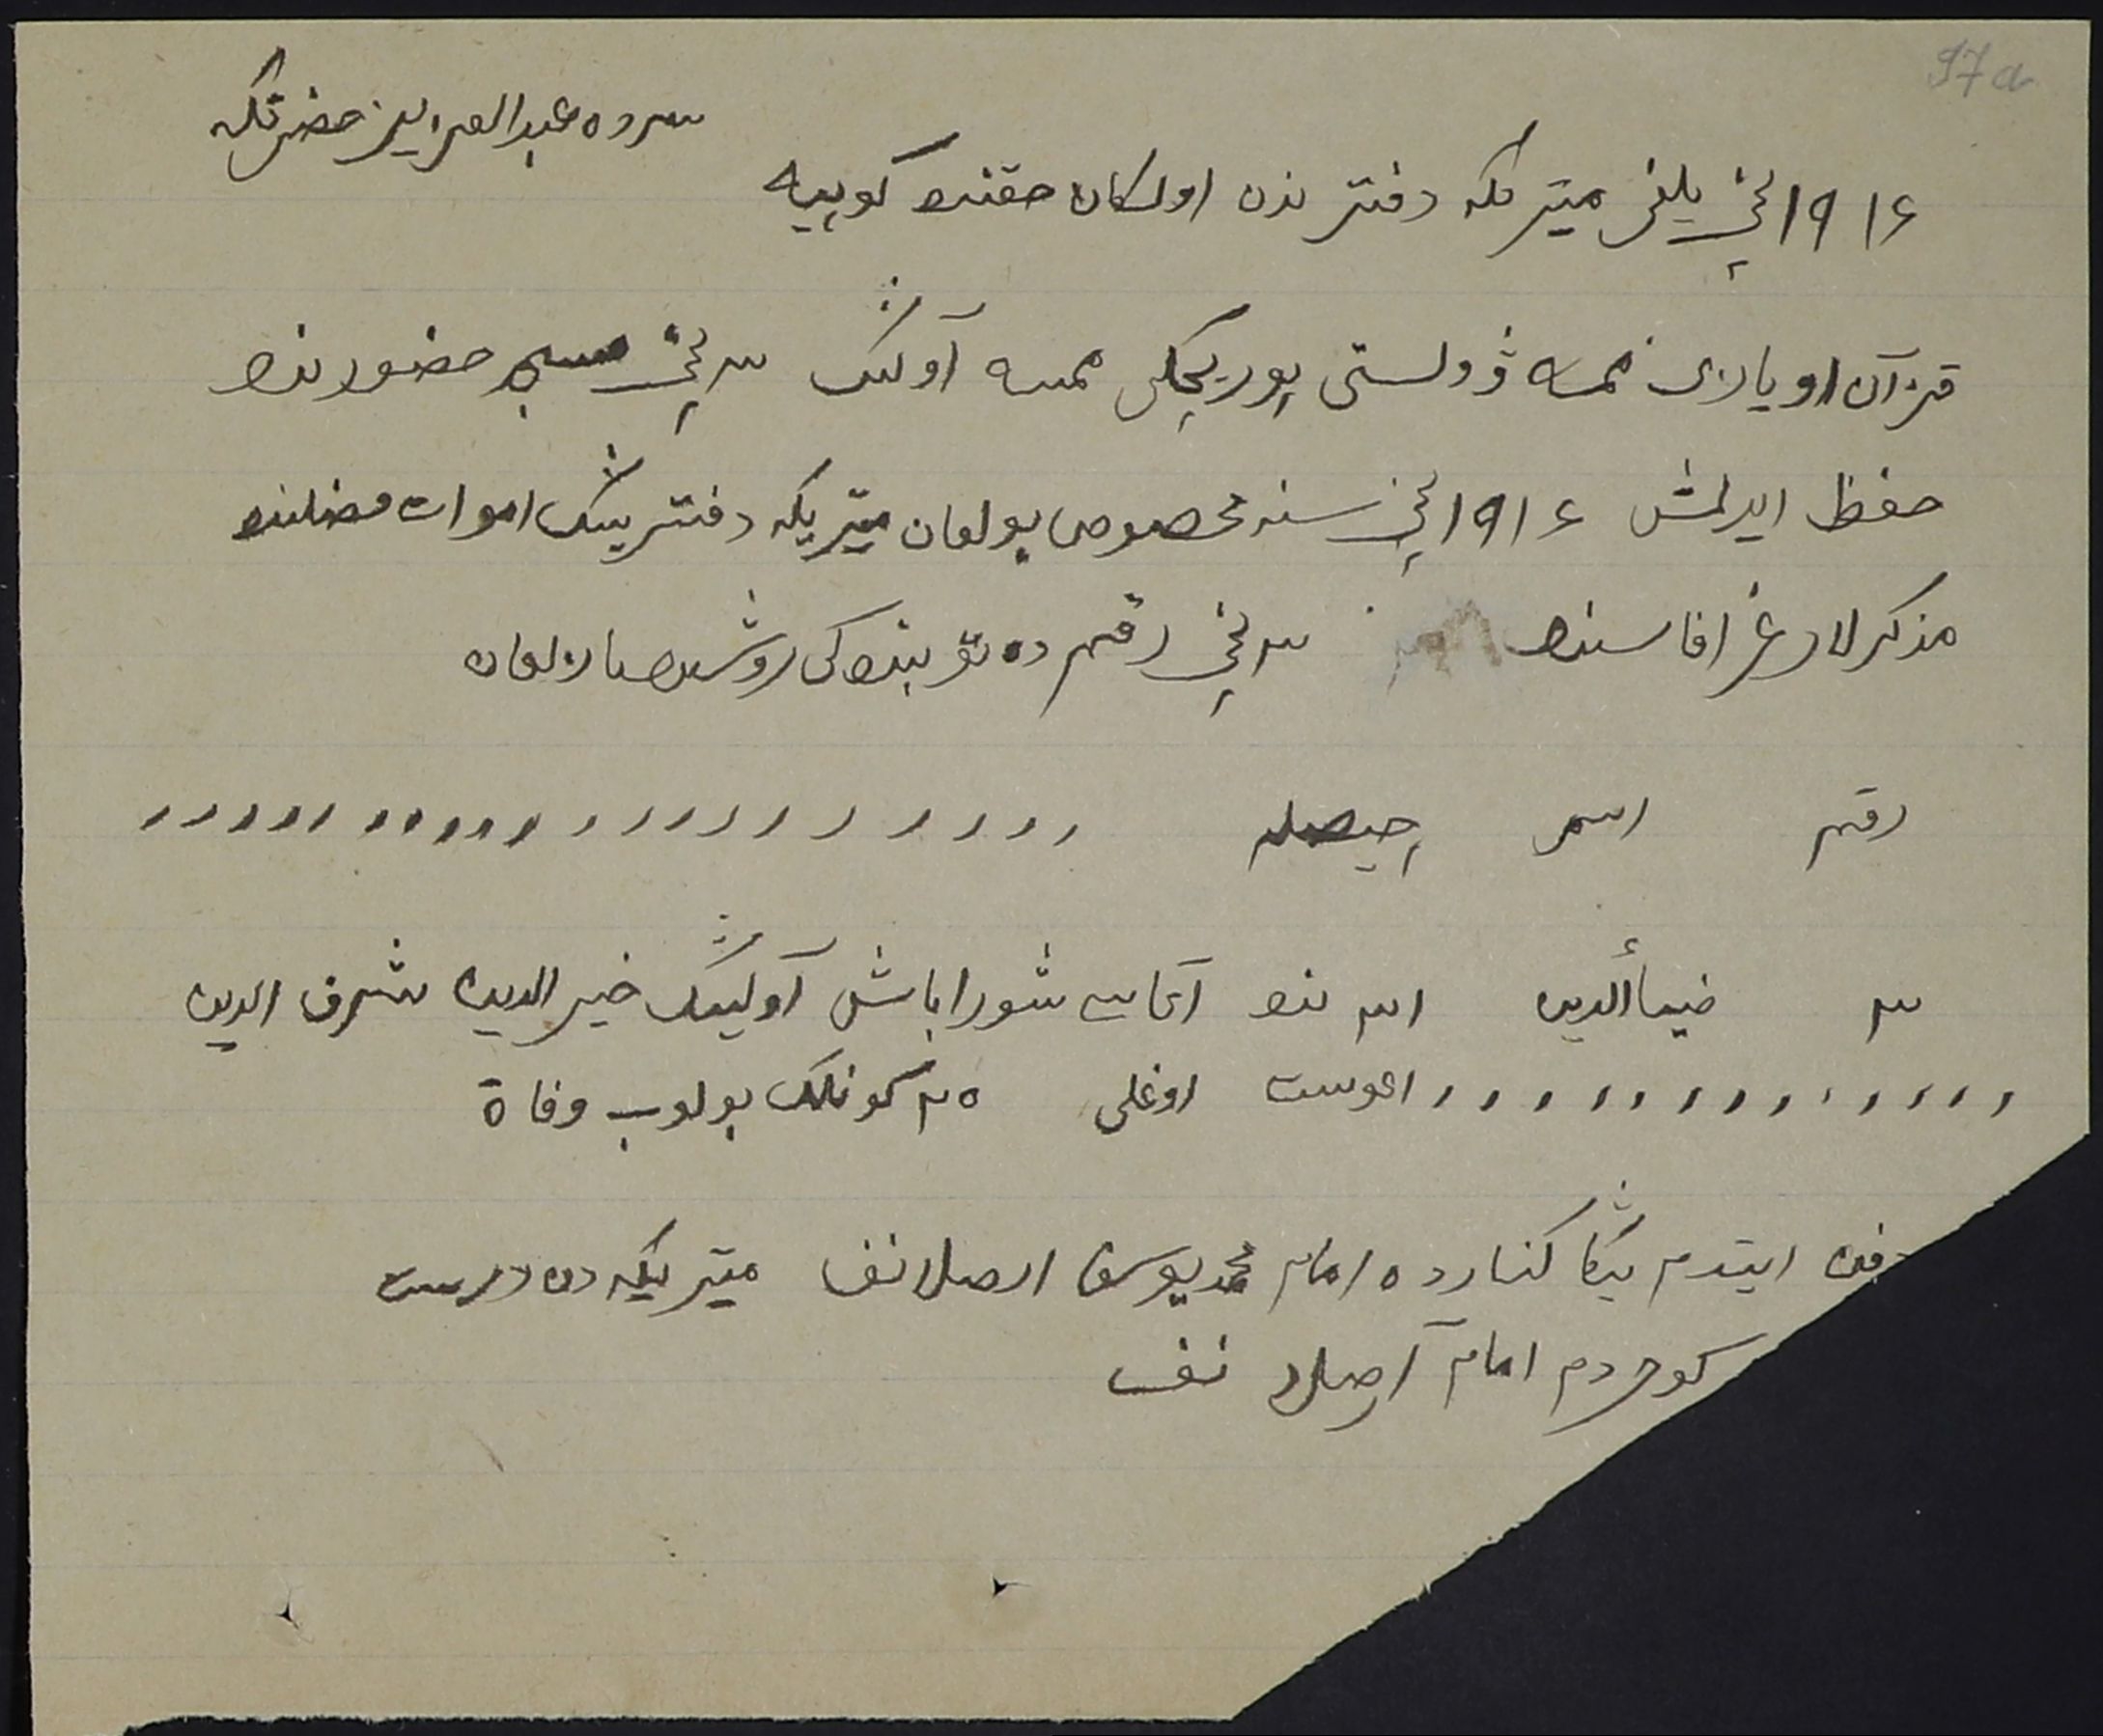 97a
سرده عبدالعزیز حضرتکه
۱۹۱۶ نچی یلغی میتریکه دفترندن اولکان حقنده کوپیه
قزان اویازی ممسه ۋولستی یوریچکی ممسه آولینڭ ۳ نچی مسجد حضورنده
حفظ ایدلمش ۱۹۱۶ نچی سنه مخصوص بولغان میتریکه دفترینڭ اموات فصلنده
مذکرلار غرافاسنده ۳ نچی رقم ده توبنده کی روشده یازلغان
رقم اسم چیصله
۳ ضیاألدین ۱۳ نده آتاسی شوراباش آولینڭ خیرالدین شرف الدین
اغوست اوغلی ۲۵ کونلک بولوب وفاة
دفن ایتدم بیکا کنارده امام محمد یوسف ارصلانف میتریکه دن درست
کوچردم امام آرصلانف